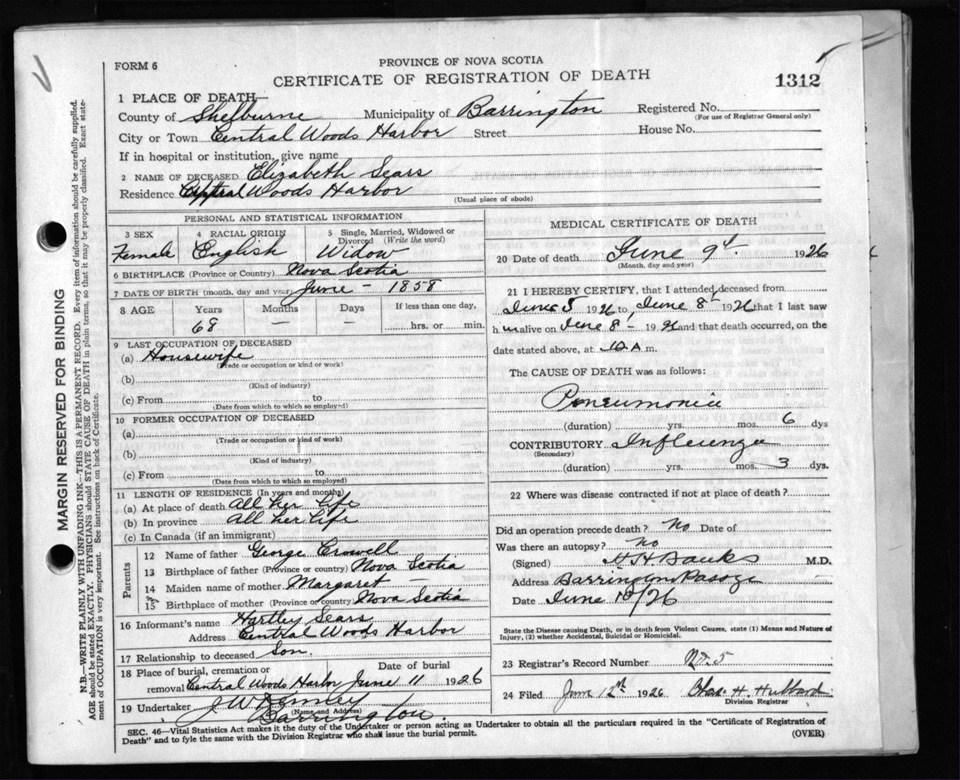 FORM 6
PROVINCE OF NOVA SCOTIA
CERTIFICATE OF REGISTRATION OF DEATH
1312
1 PLACE OF DEATH—
County of Shelburne Municipality of Barrington Registered No.
(For use of Registrar General only)
City or Town Central Woods Harbor Street House No.
If in hospital or institution, give name
2 NAME OF DECEASED Elizabeth Sears
Residence Central Woods Harbor
(Usual place of abode)
PERSONAL AND STATISTICAL INFORMATION
3 SEX 4 RACIAL ORIGIN 5 Single, Married, Widowed or Divorced (Write the word)
Female English Widow
6 BIRTHPLACE (Province or Country) Nova Scotia
7 DATE OF BIRTH (month, day and year) June - 1858
8 AGE Years Months Days If less than one day,
68 — — hrs. or min.
9 LAST OCCUPATION OF DECEASED
(a) Housewife
(Trade or occupation or kind or work)
(b)
(Kind of industry)
(c) From to
(Date from which to which so employed)
10 FORMER OCCUPATION OF DECEASED
(a)
(Trade or occupation or kind of work)
(b)
(Kind of industry)
(c) From to
(Date from which to which so employed)
11 LENGTH OF RESIDENCE (In years and months)
(a) At place of death all her life
(b) In province all her life
(c) In Canada (if an immigrant)
Parents
12 Name of father George Crowell
13 Birthplace of father (Province or country) Nova Scotia
14 Maiden name of mother Margaret —
15 Birthplace of mother (Province or country) Nova Scotia
16 Informant's name Hartley Sears
Address Central Woods Harbor
17 Relationship to deceased Son.
18 Place of burial, cremation or removal Central Woods Harbor Date of burial June 11 1926
19 Undertaker J W
(Name and Address)
Barrington.
MEDICAL CERTIFICATE OF DEATH
20 Date of death June 9th 1926
(Month, day and year)
21 I HEREBY CERTIFY, that I attended deceased from
June 5 1926 to June 8th 1926 that I last saw
h alive on June 8 - 1926 and that death occurred, on the
date stated above, at 10 A m.
The CAUSE OF DEATH was as follows:
Pneumonia
(duration) yrs. mos. 6 dys
CONTRIBUTORY Influenza
(Secondary)
(duration) yrs. mos. 3 dys.
22 Where was disease contracted if not at place of death?
Did an operation precede death? No Date of
Was there an autopsy? No
(Signed) H H Banks M.D.
Address Barrington Passage
Date June /26
State the Disease causing Death, or in death from Violent Causes, state (1) Means and Nature of
Injury, (2) whether Accidental, Suicidal or Homicidal.
23 Registrar's Record Number No. 5
24 Filed June 12th 1926 Chas. H. Hubbard
Division Registrar
SEC. 46—Vital Statistics Act makes it the duty of the Undertaker or person acting as Undertaker to obtain all the particulars required in the "Certificate of Registration of
Death" and to fyle the same with the Division Registrar who shall issue the burial permit.
(OVER)
MARGIN RESERVED FOR BINDING
N.B.—WRITE PLAINLY WITH UNFADING INK—THIS IS A PERMANENT RECORD. Every item of information should be carefully supplied.
AGE should be stated EXACTLY. PHYSICIANS should STATE CAUSE OF DEATH in plain terms, so that it may be properly classified. Exact statement
of OCCUPATION is very important. See instructions on back of Certificate.